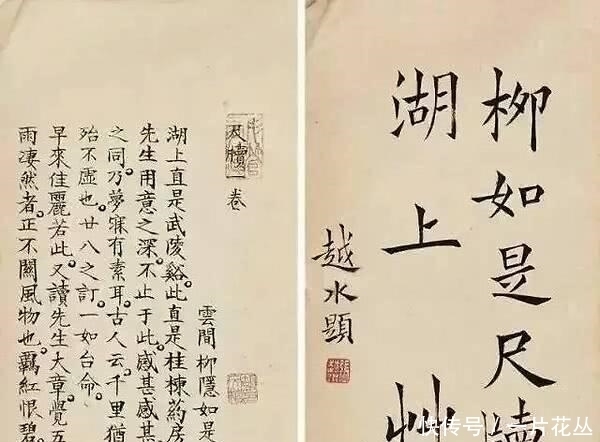 柳如是尺牘
湖上艸
越水題
尺牘一卷
雲間柳隱如是
湖上直是武陵谿。此直是桂棟葯房
先生用意之深。不止于此。感甚感甚
之同。乃夢寐有素耳。古人云。千里猶
殆不虛也。廿八之訂。一如台命。
早來佳麗若此。又讀先生大章。覺五
雨淒然者。正不關風物也。羈紅恨碧
快传号 / 一片花丛